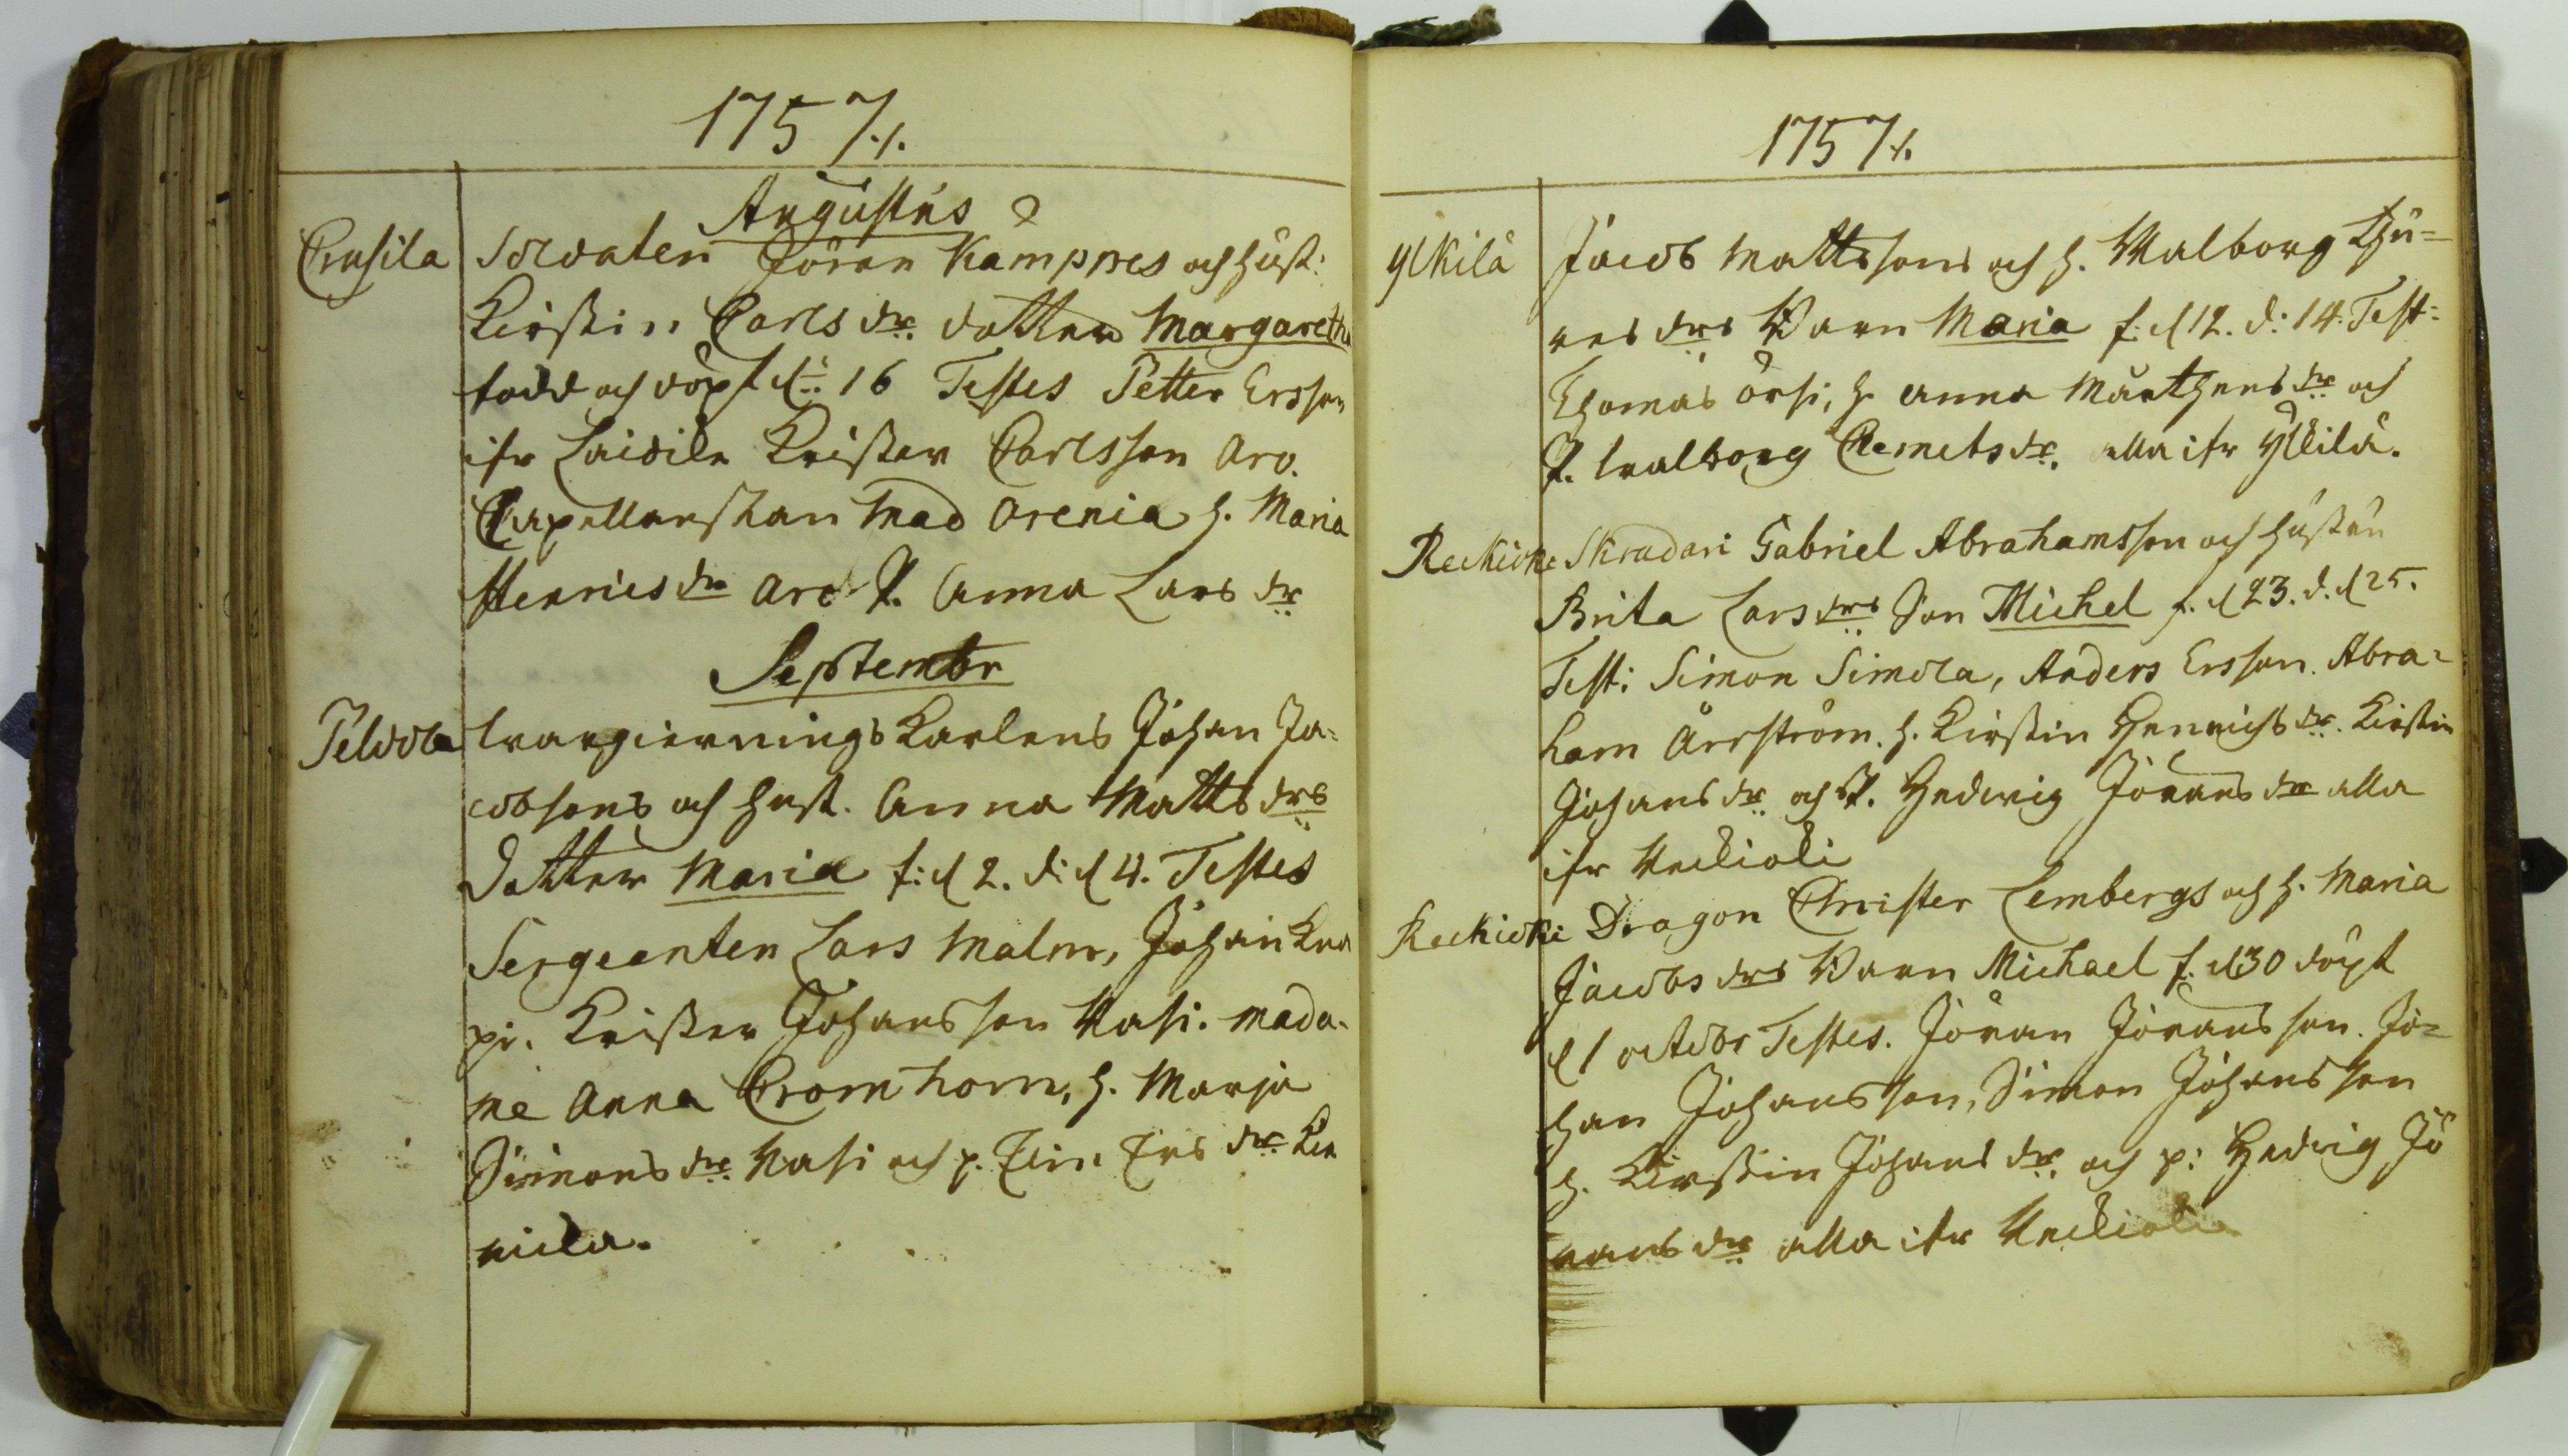 1757./.
Augustus
Crusila Soldaten Jöran Kämppes och hust:
Kirstin Carls dr. dotter Margaretha
född och döpt d: 16 Testes Petter Ersson
ifr Laidila Krister Carlsson Aro.
Capellanskan Mad Orenia h. Maria
Henrics dr Aro P. Anna Lars dr
Septembr
Peldola Wargierings Karlens Johan Ja-
cobsons och hust. Anna Matts drs
Dotter Maria f: d 2. d: d 4. Testes
Sergeanten Lars Malm, Johan Kna
pi. Krister Johansson Wasi. mada-
me Anna Cromhorn, h. Marja
Simons dr. Wasi och p. Elin Ers dr
nicka.
1757./.
Ylkilä Jacob Mattssons och h. Walborg Thu-
res drs Barn Maria f: d 12. d: 14. Test:
Thomas Orsi, h. Anna Mårthens dr och
P. Walborg Clemets dr. alla ifr Ylkilä.
Reckioki Skradari Gabriel Abrahamsson och hustrun
Brita Lars drs Son Michel f. d 23. d. d 25.
Test: Simon Simola, Anders Ersson. Abra-
ham Årrström. h. Kirstin Henrichs dr. Kirstin
Johans dr och P. Hedvig Jörans dr alla
ifr Reckioki
Reckioki Dragon Christer Lembergs och h. Maria
Jacobs drs Barn Michael f. d 30 döpt
d 1 octobr Testes. Jöran Jöransson. Jo-
han Johansson, Simon Johansson
h. Kirstin Johans dr. och p: Hedvig Jö
rans dr alla ifr Reckioki